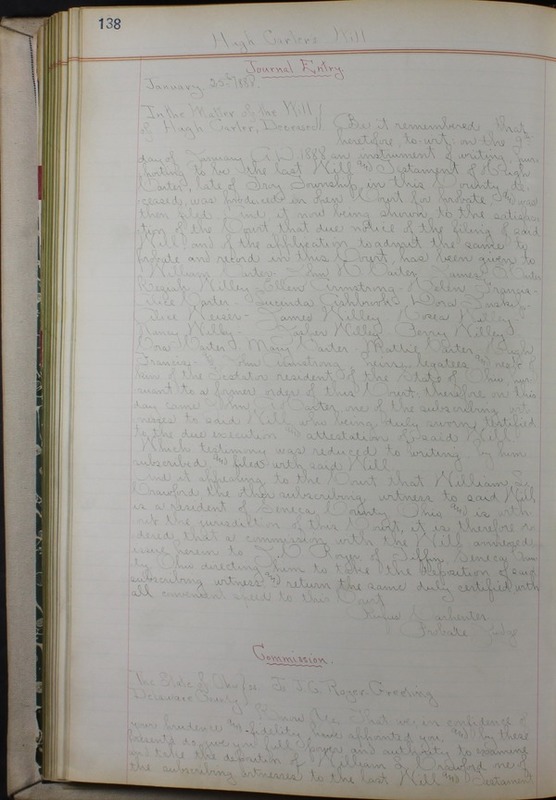 138
Hugh Carters Will
Journal Entry
January 25th 1888.
In the Matter of the Will
of Hugh Carter, Deceased. Be it remembered that
heretofore, to-wit: on the 9
day of January A.D. 1888 an instrument of writing pur-
porting to be the last Will and Testament of Hugh
Carter, late of Township, in this County, de-
ceased, was produced in open Court for probate and was
then filed. And it now being shown to the satisfac-
tion of the Court that due notice of the filing of said
Will, and of the application to admit the same to
probate and record in this Court, has been given to
William Carter John H Carter James Carter
Keziah Willey Ellen Armstrong Helen Francis
Carter Lucinda Dora
James Willey Moses Willey
Nancy Willey Willey Perry Willey
Cora Carter Mary Carter Mattie Carter Hugh
Francis John Armstrong heirs legatees and next of
kin of the testator resident of the State of Ohio, pur-
suant to a former order of this Court, therefore on this
day came John Carter one of the subscribing wit-
nesses to said Will, who being duly sworn, testified
to the due execution and attestation of said Will.
Which testimony was reduced to writing by him
subscribed and filed with said Will.
And it appearing to the Court that William G.
Crawford the other subscribing witness to said Will
is a resident of Seneca County Ohio and is with-
out the jurisdiction of this Court, it is therefore or-
dered, that a commission with the Will annexed
issue herein to J.C. Royer of Tiffin, Seneca Coun-
ty, Ohio directing him to take the deposition of said
subscribing witness and return the same duly certified with
all convenient speed to this Court.
Carpenter
Probate Judge
Commission.
The State of Ohio ss. To J.C. Royer Greeting
Delaware County
Know Ye, That we, in confidence of
your prudence and fidelity, have appointed you and by these
presents do give you full power and authority to examine
and take the deposition of William G. Crawford one of
the subscribing witnesses to the last Will and Testament